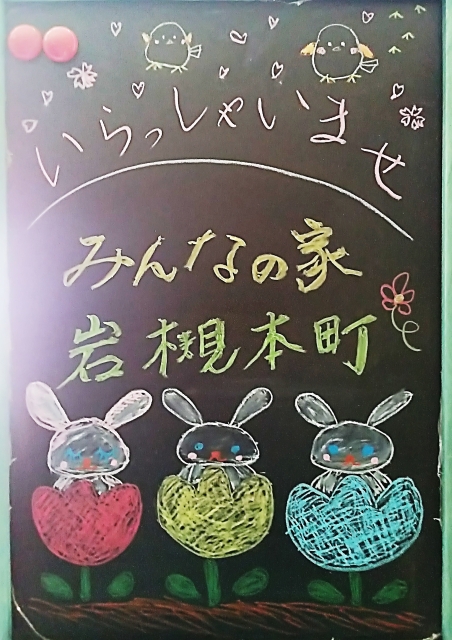 いらっしゃいませ
みんなの家
岩槻本町